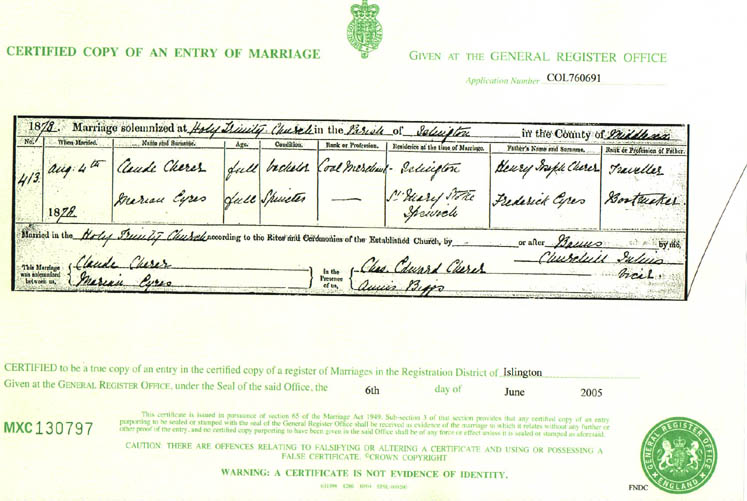 CERTIFIED COPY OF AN ENTRY OF MARRIAGE
GIVEN AT THE GENERAL REGISTER OFFICE
Application Number COL760691
1878. Marriage solemnized at Holy Trinity Church in the Parish of Islington in the County of Middlesex
No. When Married. Name and Surname. Age. Condition. Rank or Profession. Residence at the time of Marriage. Father's Name and Surname. Rank or Profession of Father.
413 Aug. 4th Claude Cherer full bachelor Coal Merchant Islington Henry Joseph Cherer Traveller
1878 Marian Eyres full Spinster — St Mary Stoke Ipswich Frederick Eyres Bootmaker
Married in the Holy Trinity Church according to the Rites and Ceremonies of the Established Church, by — or after Banns by me,
Churchill Julius
Vicar.
This Marriage was solemnized between us, Claude Cherer Marian Eyres
In the Presence of us, Chas. Edward Cherer Annis Biggs
CERTIFIED to be a true copy of an entry in the certified copy of a register of Marriages in the Registration District of Islington
Given at the GENERAL REGISTER OFFICE, under the Seal of the said Office, the 6th day of June 2005
MXC 130797
This certificate is issued in pursuance of section 65 of the Marriage Act 1949. Sub-section 3 of that section provides that any certified copy of an entry
purporting to be sealed or stamped with the seal of the General Register Office shall be received as evidence of the marriage to which it relates without any further or
other proof of the entry, and no certified copy purporting to have been given in the said Office shall be of any force or effect unless it is sealed or stamped as aforesaid.
CAUTION: THERE ARE OFFENCES RELATING TO FALSIFYING OR ALTERING A CERTIFICATE AND USING OR POSSESSING A
FALSE CERTIFICATE. ©CROWN COPYRIGHT
WARNING: A CERTIFICATE IS NOT EVIDENCE OF IDENTITY.
FNDC
GENERAL REGISTER OFFICE
ENGLAND